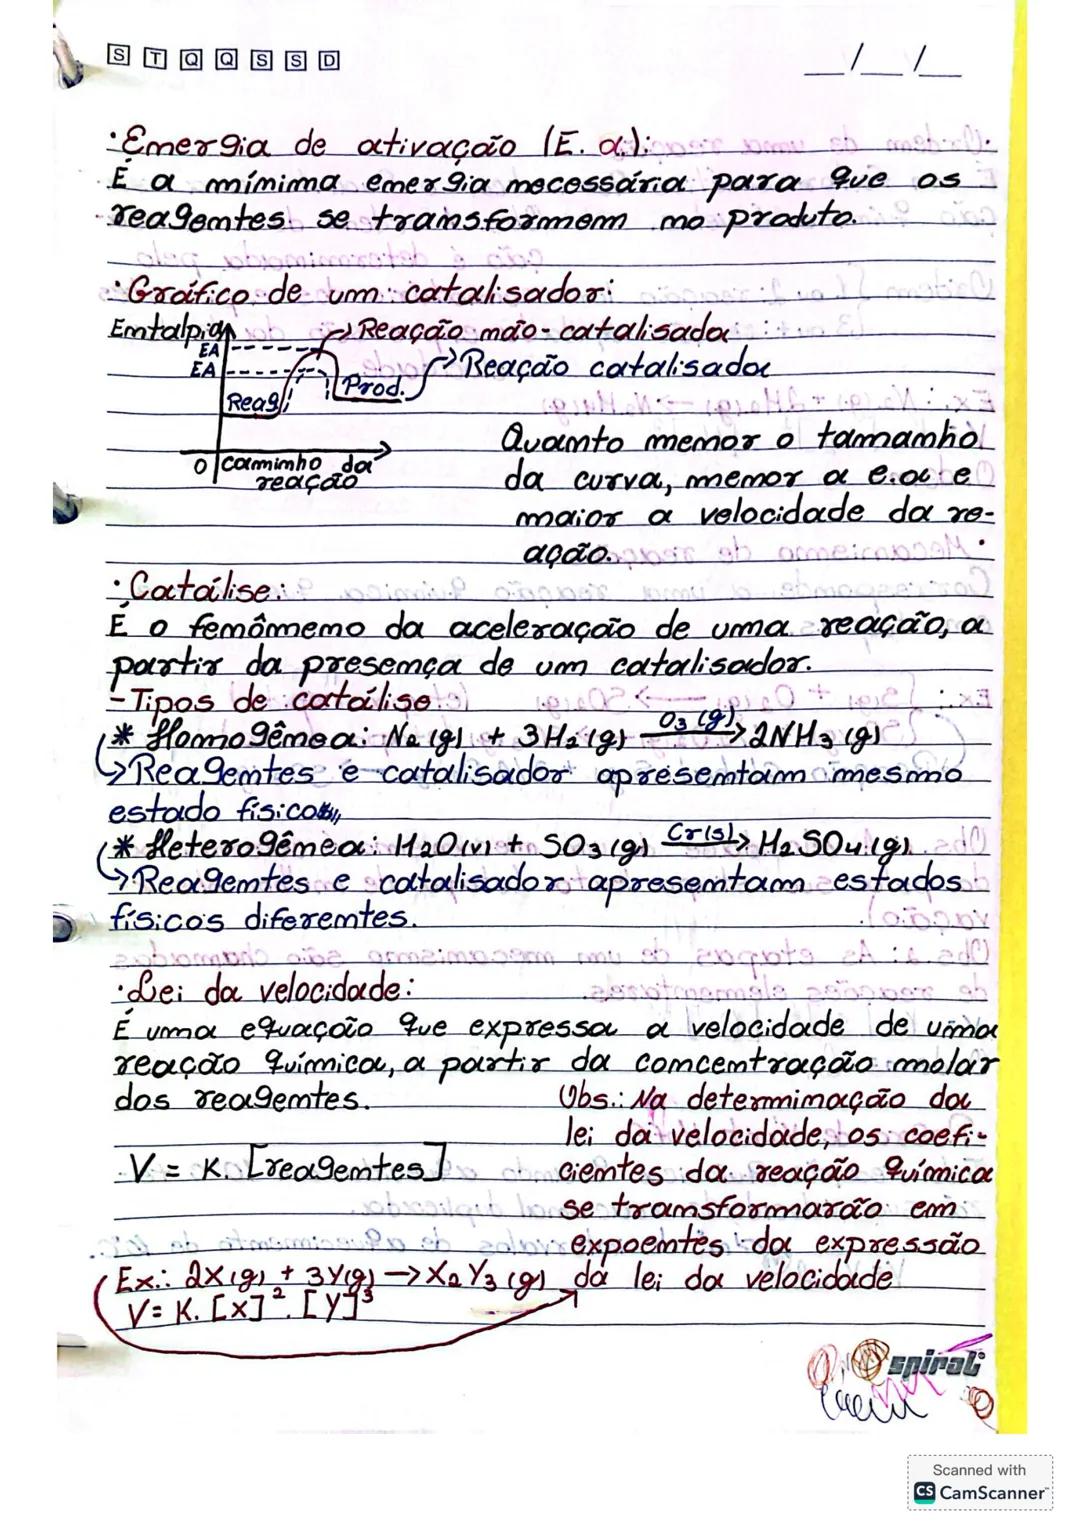 S T Q Q S S D
__/__/__
·Energia de ativação (E. a.):
É a mínima energia necessária para que os
reagentes se transformem no produto.
·Gráfico de um catalisador:
Entalpia
Reação não-catalisada
EA
EA
Reação catalisada
Reag.
Prod.
0 caminho da
reação
Quanto menor o tamanho
da curva, menor a e.a e
maior a velocidade da re-
ação.
·Catálise:
É o fenômeno da aceleração de uma reação, a
partir da presença de um catalisador.
-Tipos de catálise
* Homogênea: N₂(g) + 3H₂(g) O₃(g)→ 2NH₃(g)
↳Reagentes e catalisador apresentam mesmo
estado físico
* Heterogênea: H₂O(v) + SO₃(g) Cr(s)→ H₂SO₄(g)
↳Reagentes e catalisador apresentam estados
físicos diferentes.
·Lei da velocidade:
É uma equação que expressa a velocidade de uma
reação química, a partir da concentração molar
dos reagentes.
V = K. [reagentes]
Obs.: Na determinação da
lei da velocidade, os coefi-
cientes da reação química
se transformarão em
expoentes da expressão
da lei da velocidade
Ex.: 2X(g) + 3Y(g) → X₂Y₃(g)
V = K. [X]². [Y]³
spiral
Scanned with
CS CamScanner